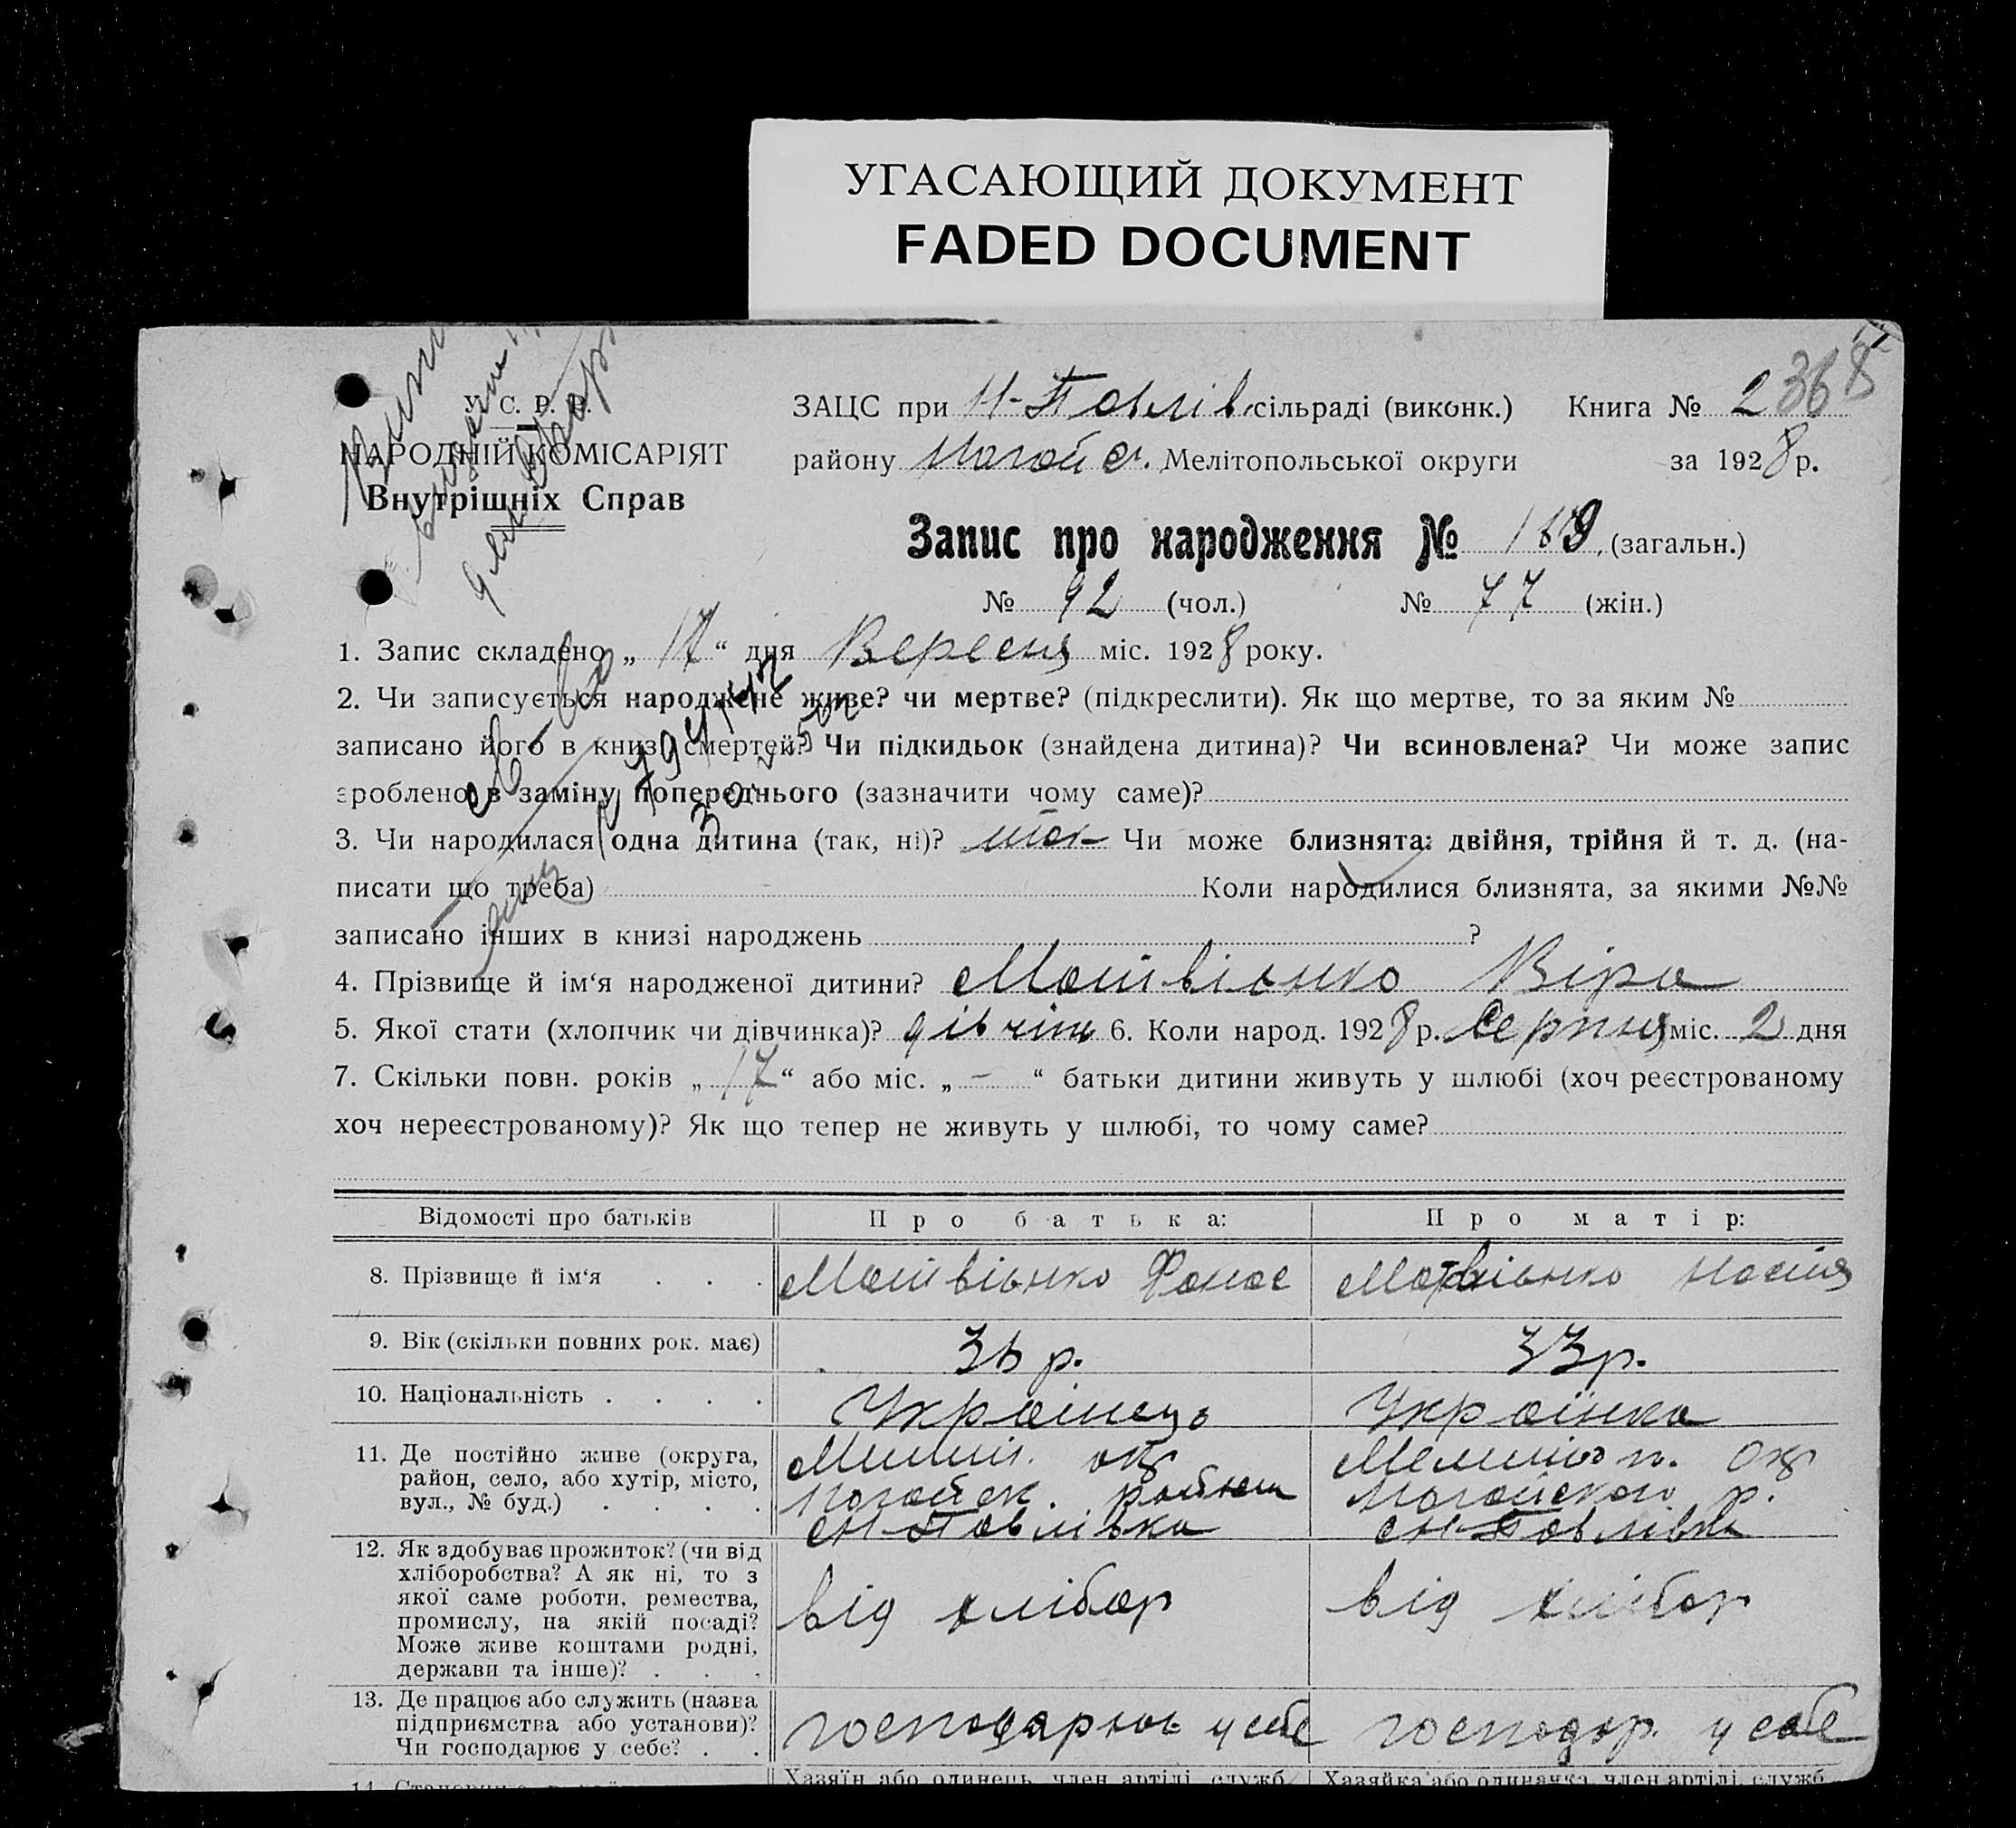 УГАСАЮЩИЙ ДОКУМЕНТ
FADED DOCUMENT
У. С. Р. Р.
НАРОДНІЙ КОМІСАРІЯТ
Внутрішніх Справ
ЗАЦС при Н-Павлів сільраді (виконк.) Книга № 2 368
району Ногайс. Мелітопольської округи за 1928 р.
Запис про народження № 169 (загальн.)
№ 92 (чол.) № 77 (жін.)
1. Запис складено „ 17 “ дня Вересня міс. 1928 року.
2. Чи записується народжене живе? чи мертве? (підкреслити). Як що мертве, то за яким №
записано його в книзі смертей? Чи підкидьок (знайдена дитина)? Чи всиновлена? Чи може запис
зроблено в заміну попереднього (зазначити чому саме)?
3. Чи народилася одна дитина (так, ні)? так Чи може близнята: двійня, трійня й т. д. (на-
писати що треба) Коли народилися близнята, за якими №№
записано інших в книзі народжень ?
4. Прізвище й ім‘я народженої дитини? Матвієнко Віра
5. Якої стати (хлопчик чи дівчинка)? дівчин 6. Коли народ. 1928 р. Серпня міс. 2 дня
7. Скільки повн. років „ 17 “ або міс. „ – “ батьки дитини живуть у шлюбі (хоч реєстрованому
хоч нереєстрованому)? Як що тепер не живуть у шлюбі, то чому саме?
Відомості про батьків Про батька: Про матір:
8. Прізвище й ім‘я . . . Матвієнко Фанас Матвієнко Настя
9. Вік (скільки повних рок. має) 36 р. 33 р.
10. Національність . . . . Українець Українка
11. Де постійно живе (округа, район, село, або хутір, місто, вул., № буд.) . . . .
Меліт. окр Ногайськ. район с Н-Павлівка
Мелитоп. окр Ногайского р. с Н-Павлівка
12. Як здобуває прожиток? (чи від хліборобства? А як ні, то з якої саме роботи, ремества, промислу, на якій посаді? Може живе коштами родні, держави та інше)? . . .
від хлібор від хлібор
13. Де працює або служить (назва підприємства або установи)? Чи господарює у себе? . .
господарює у себе господар. у себе
Хазяїн або одинець, член артілі, служб. Хазяйка або одиначка, член артілі, служб.